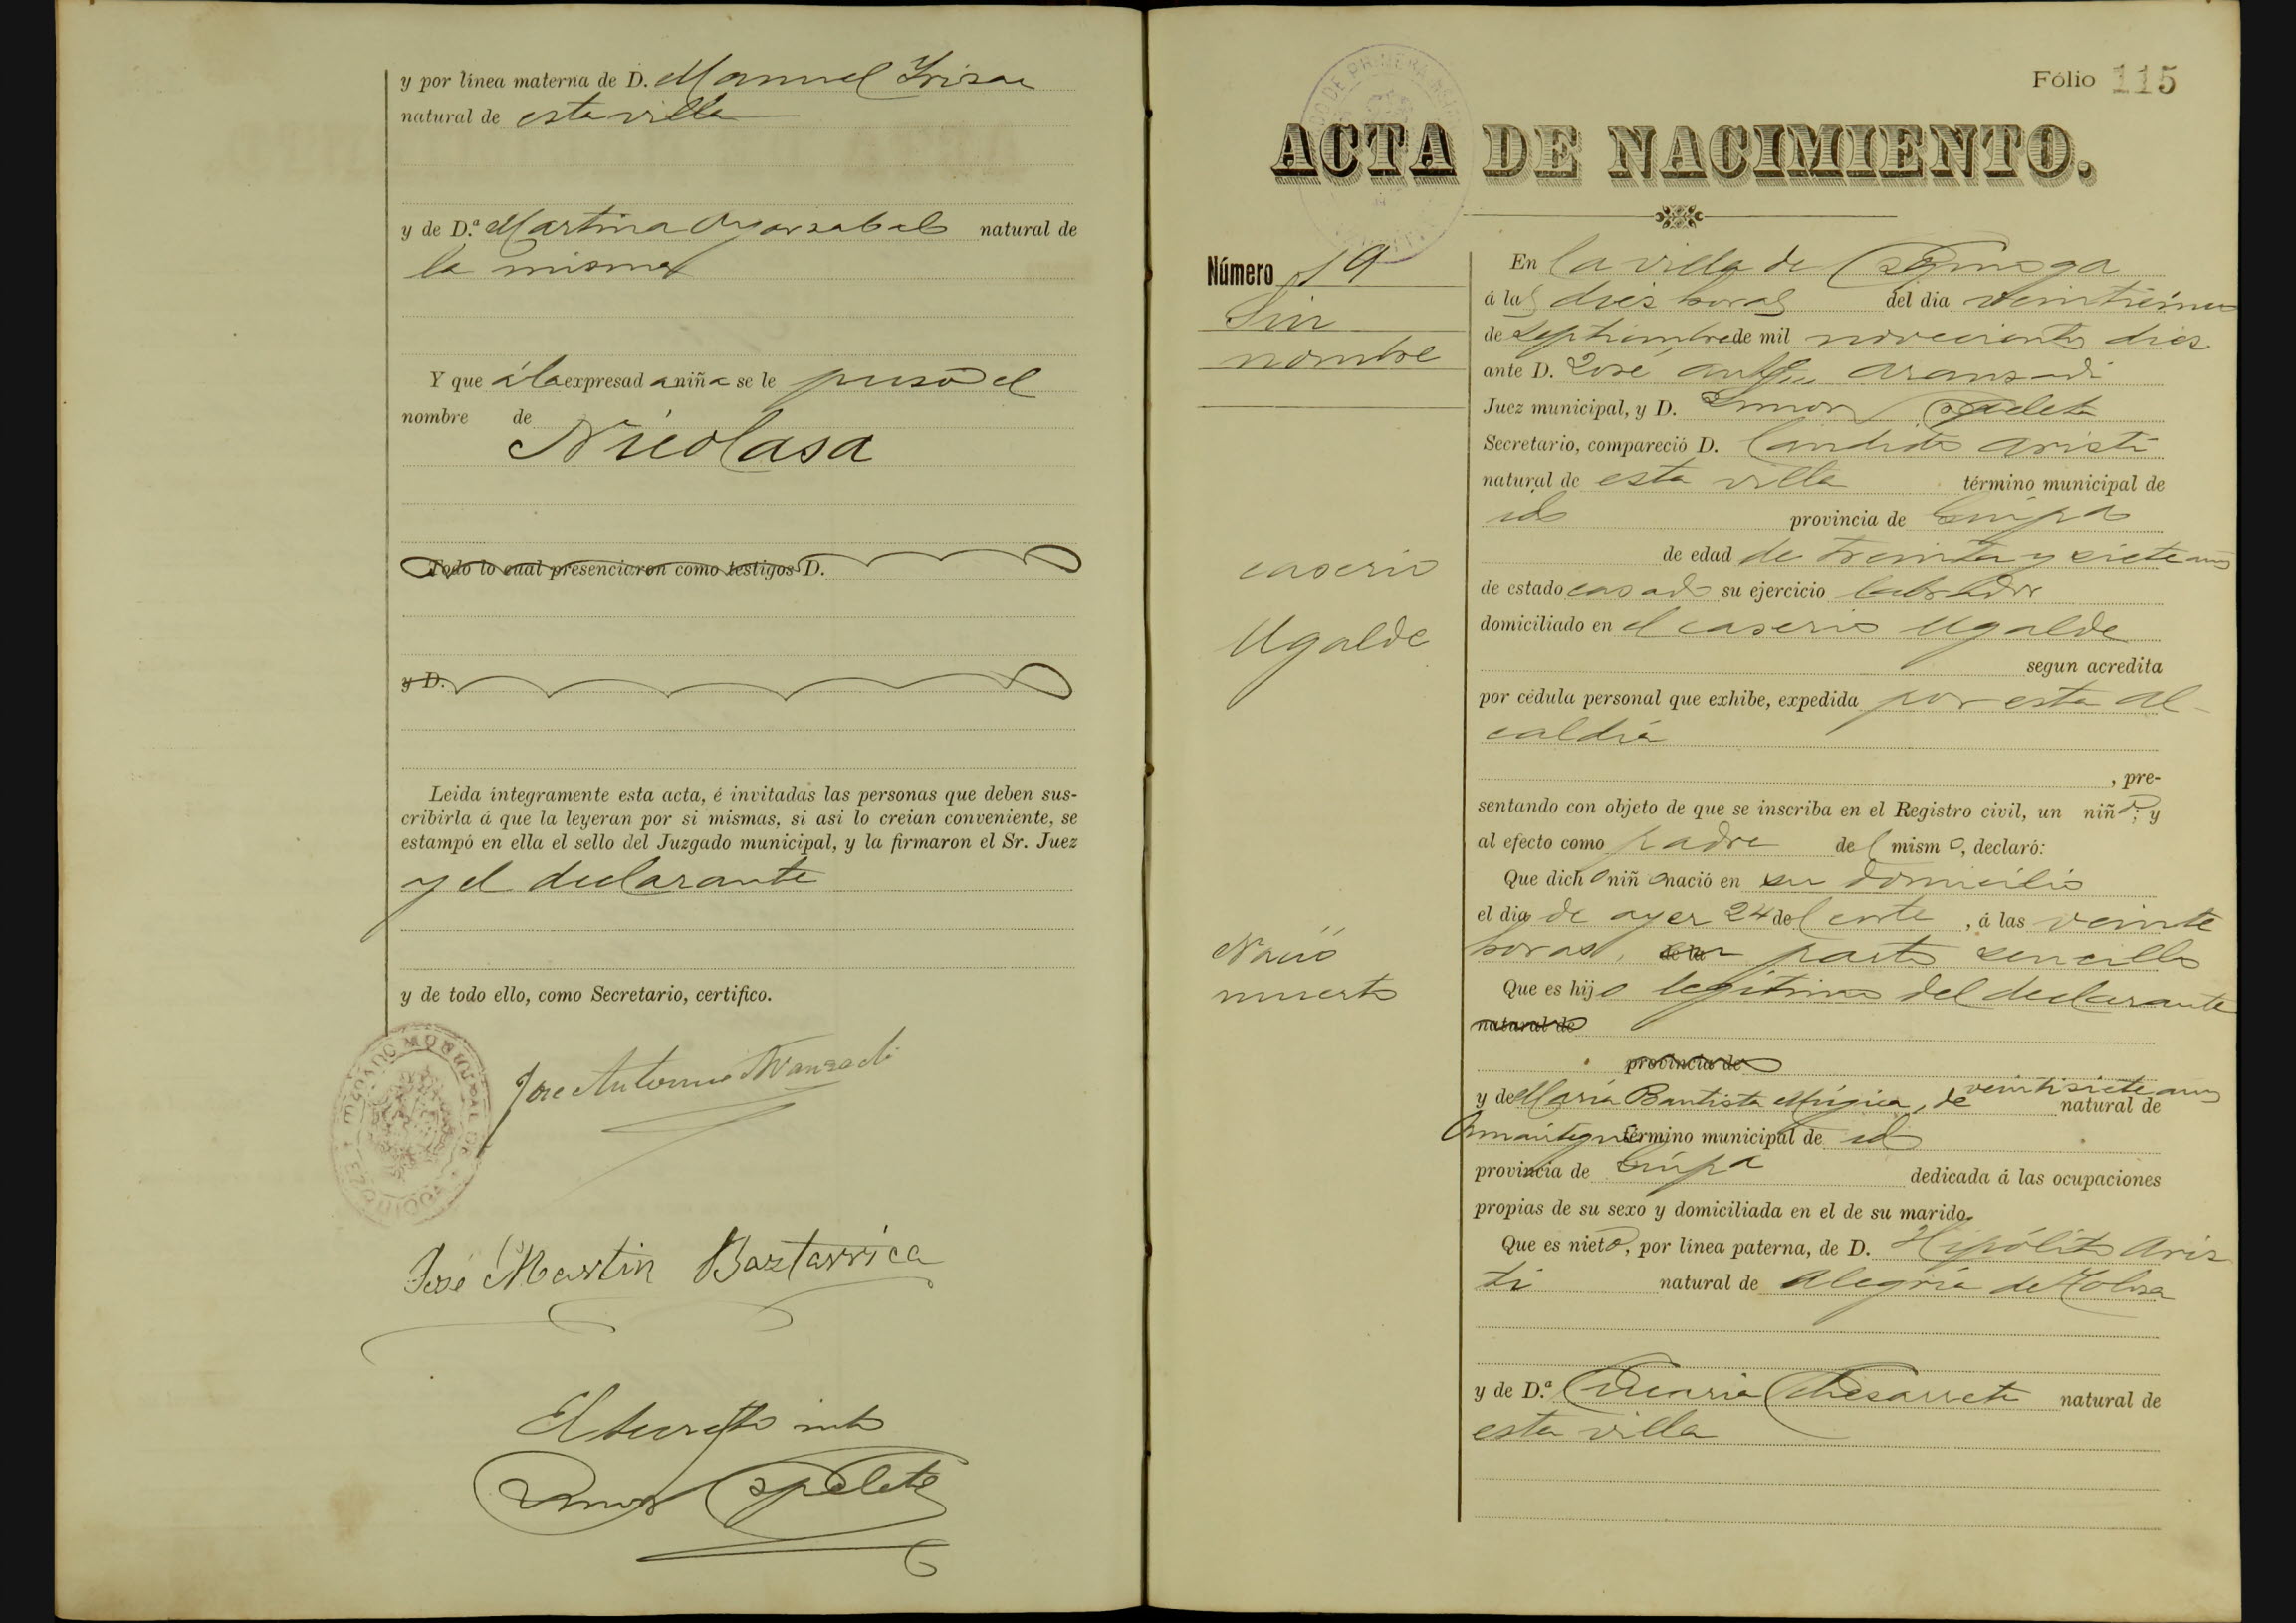 y por línea materna de D. Manuel Yrizar
natural de esta villa
y de D.ª Martina Oyarzabal natural de
la misma
Y que á la expresada niña se le puso el
nombre de
Nicolasa
Todo lo cual presenciaron como testigos D.
y D.
Leida íntegramente esta acta, é invitadas las personas que deben sus-
cribirla á que la leyeran por si mismas, si asi lo creian conveniente, se
estampó en ella el sello del Juzgado municipal, y la firmaron el Sr. Juez
y el declarante
y de todo ello, como Secretario, certifico.
JUZGADO MUNICIPAL DE
Jose Antonio Aranzadi
José Martin Baztarrica
El Secreto into
Fólio 115
ACTA DE NACIMIENTO.
Número 19
Sin
nombre
caserio
Ugalde
Nació
muerto
En la villa de
á las diez horas del dia
de Septiembre de mil novecientos diez
ante D. José Antº Aranzadi
Juez municipal, y D.
Secretario, compareció D. Candido Aristi
natural de esta villa término municipal de
id provincia de Guipª
de edad de treinta y siete años
de estado casado su ejercicio labrador
domiciliado en el caserio Ugalde
segun acredita
por cédula personal que exhibe, expedida por esta Al-
caldía
, pre-
sentando con objeto de que se inscriba en el Registro civil, un niño; y
al efecto como padre del mismo, declaró:
Que dicho niño nació en su domicilio
el dia de ayer 24 del corte, á las veinte
horas, parto sencillo
Que es hijo legítimo del declarante
natural de
provincia de
y de María Bautista Múgica, de veintisiete años natural de
Ormaiztegui término municipal de id
provincia de Guipª dedicada á las ocupaciones
propias de su sexo y domiciliada en el de su marido.
Que es nieto, por línea paterna, de D. Hipólito Aris
ti natural de Alegría de Tolosa
y de D.ª natural de
esta villa